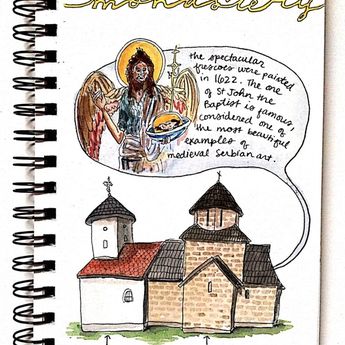 monastery
the spectacular
frescoes were painted
in 1622. The one
of St John the
Baptist is famous,
considered one of
the most beautiful
examples of
medieval Serbian art.